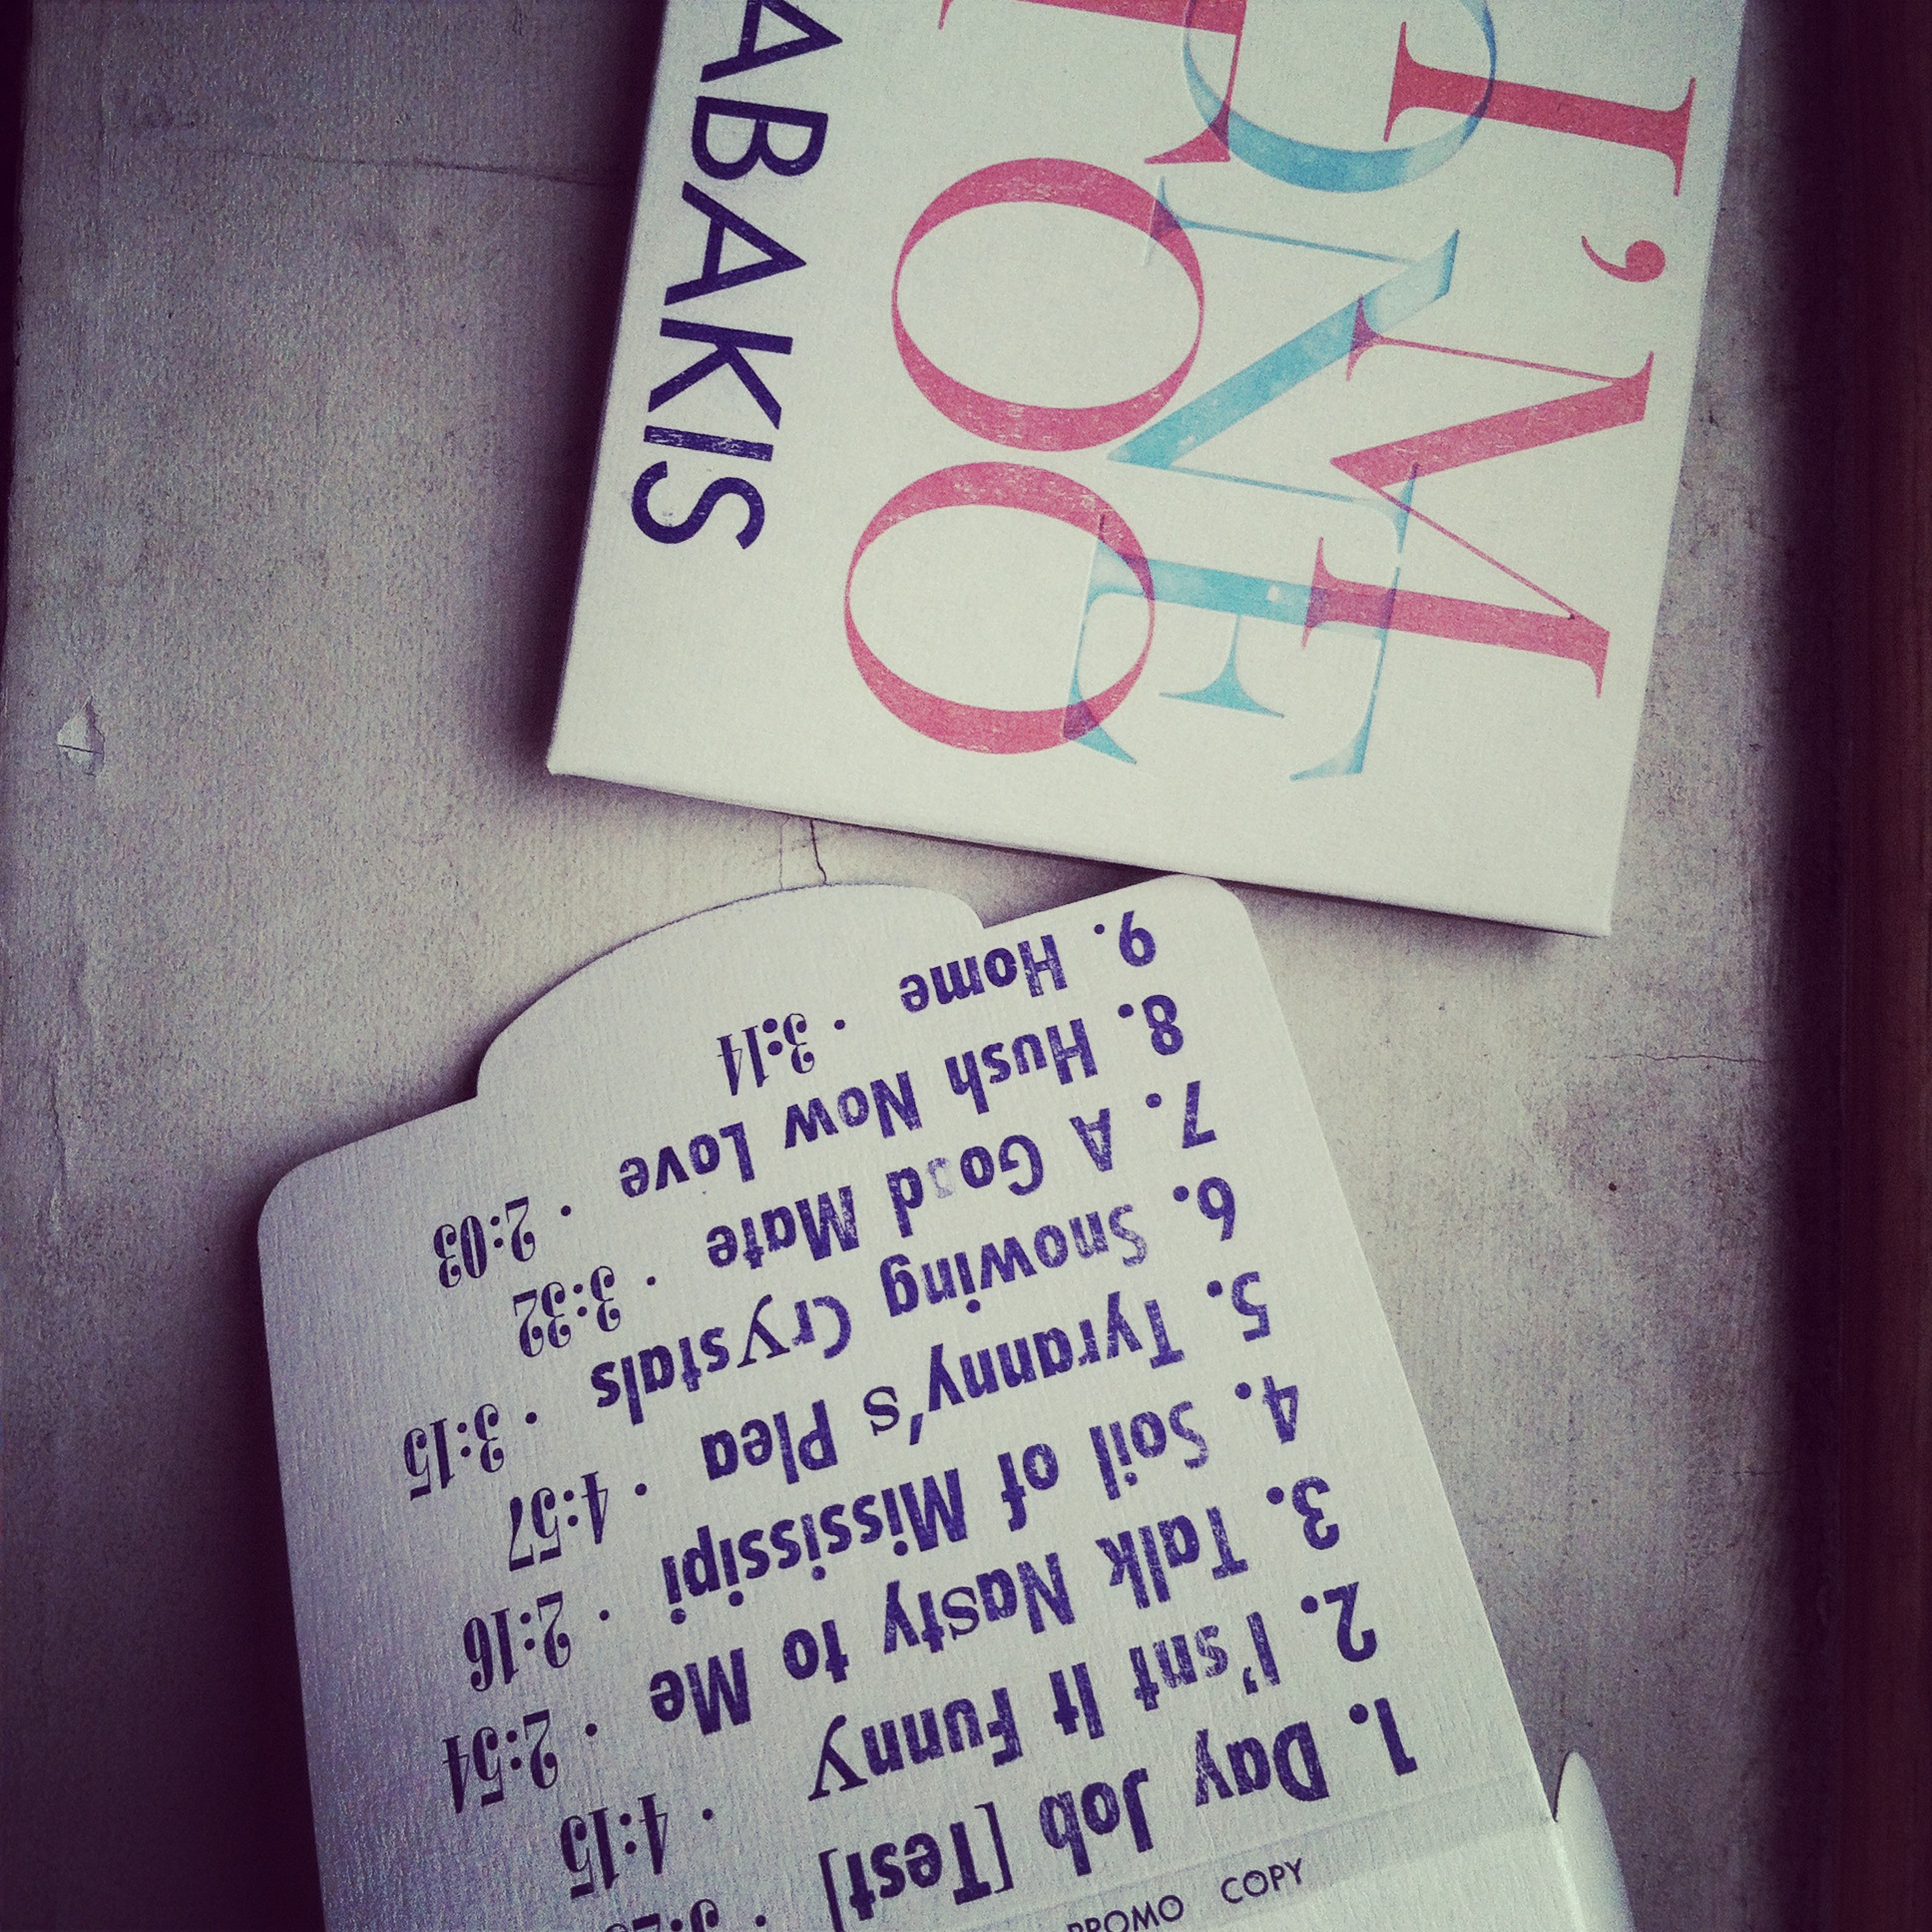 I'M
GONE
TOO
ABAKIS
PROMO COPY
1. Day Job [Test]
2. I'snt It Funny · 4:15
3. Talk Nasty to Me · 2:54
4. Soil of Mississipi · 2:16
5. Tyranny's Plea · 4:57
6. Snowing Crystals · 3:15
7. A Good Mate · 3:32
8. Hush Now Love · 2:03
9. Home · 3:14